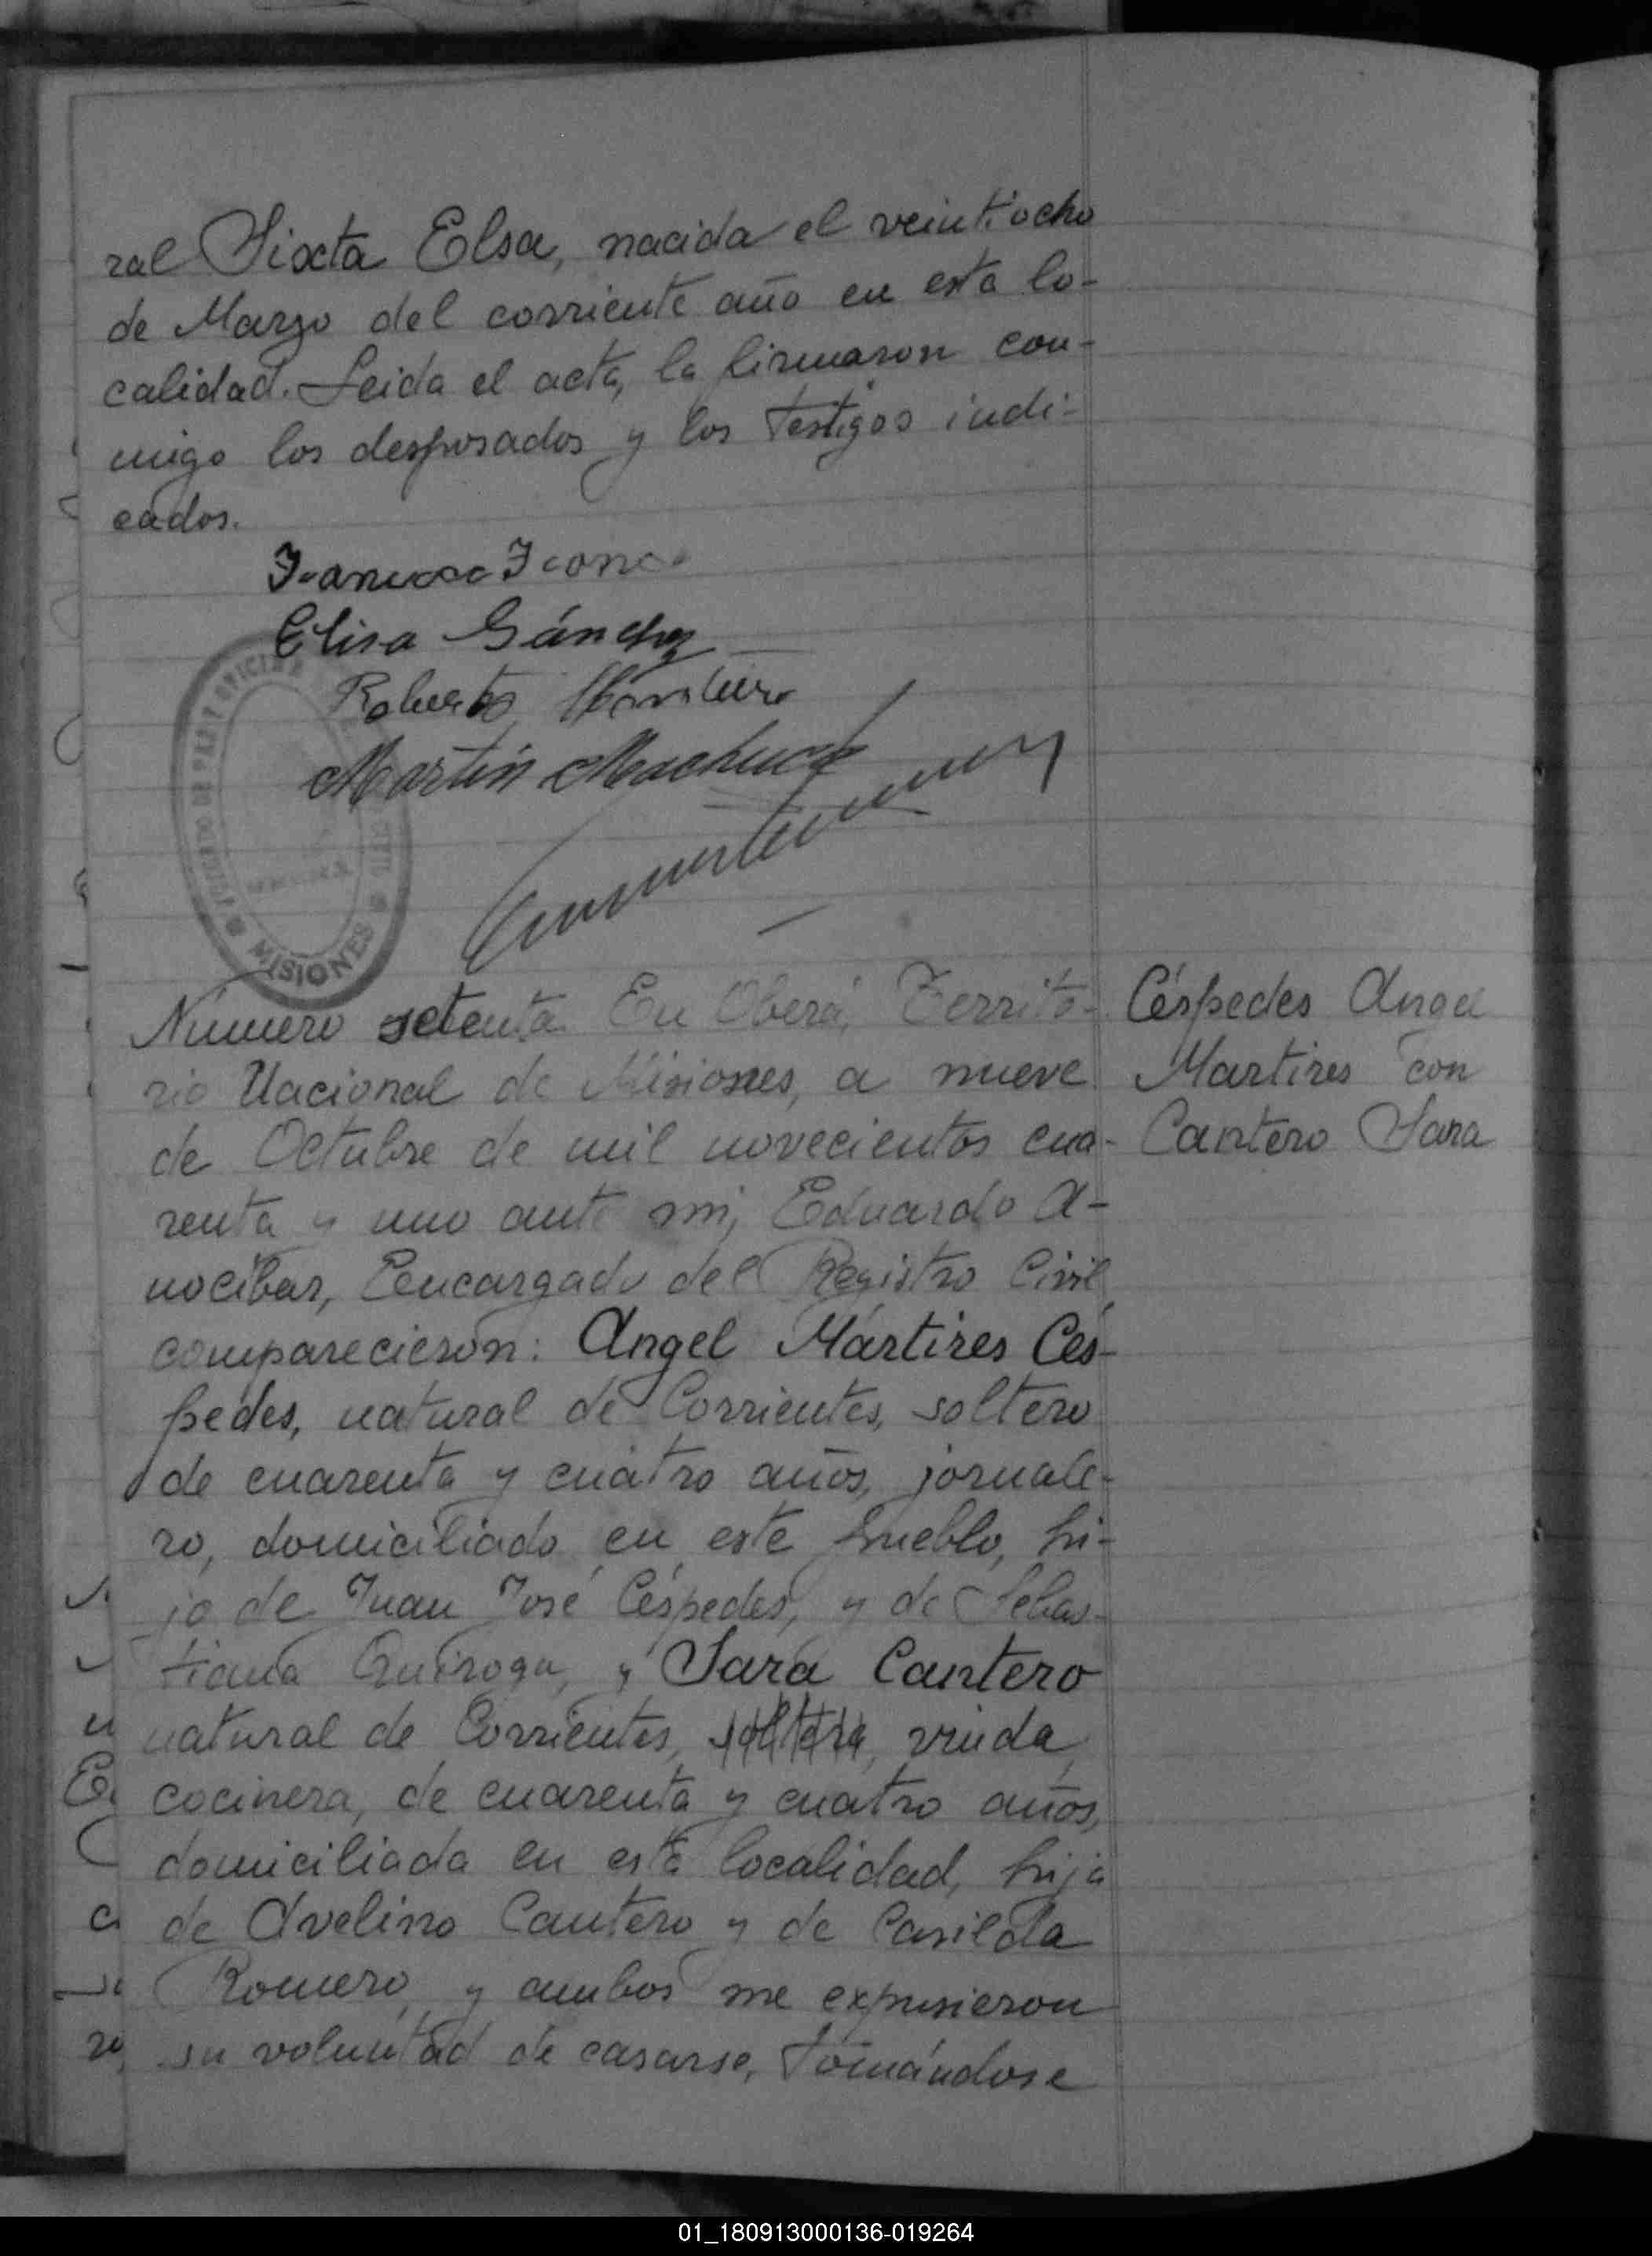 ral Sixta Elsa, nacida el veintiocho
de Marzo del corriente año en esta lo-
calidad. Leida el acta, la firmaron con-
migo los desposados y los testigos indi-
cados.
Elisa Sánchez
Roberto
Martin Machuca
JUZGADO DE PAZ Y OFICINA
CIVIL
MISIONES
Número setenta. En Oberá, Territo-
rio Nacional de Misiones, a nueve
de Octubre de mil novecientos cua-
renta y uno ante mi, Eduardo A-
nocibar, Encargado del Registro Civil,
comparecieron: Angel Mártires Cés-
pedes, natural de Corrientes, soltero
de cuarenta y cuatro años, jornale-
ro, domiciliado en este pueblo, hi-
jo de Juan José Céspedes, y de Sebas-
tiana Quiroga, y Sara Cantero
natural de Corrientes, soltera, viuda,
cocinera, de cuarenta y cuatro años,
domiciliada en esta localidad, hija
de Avelino Cantero y de Casilda
Romero, y ambos me expusieron
su voluntad de casarse, tomándose
Céspedes Angel
Martires con
Cantero Sara
01_180913000136-019264